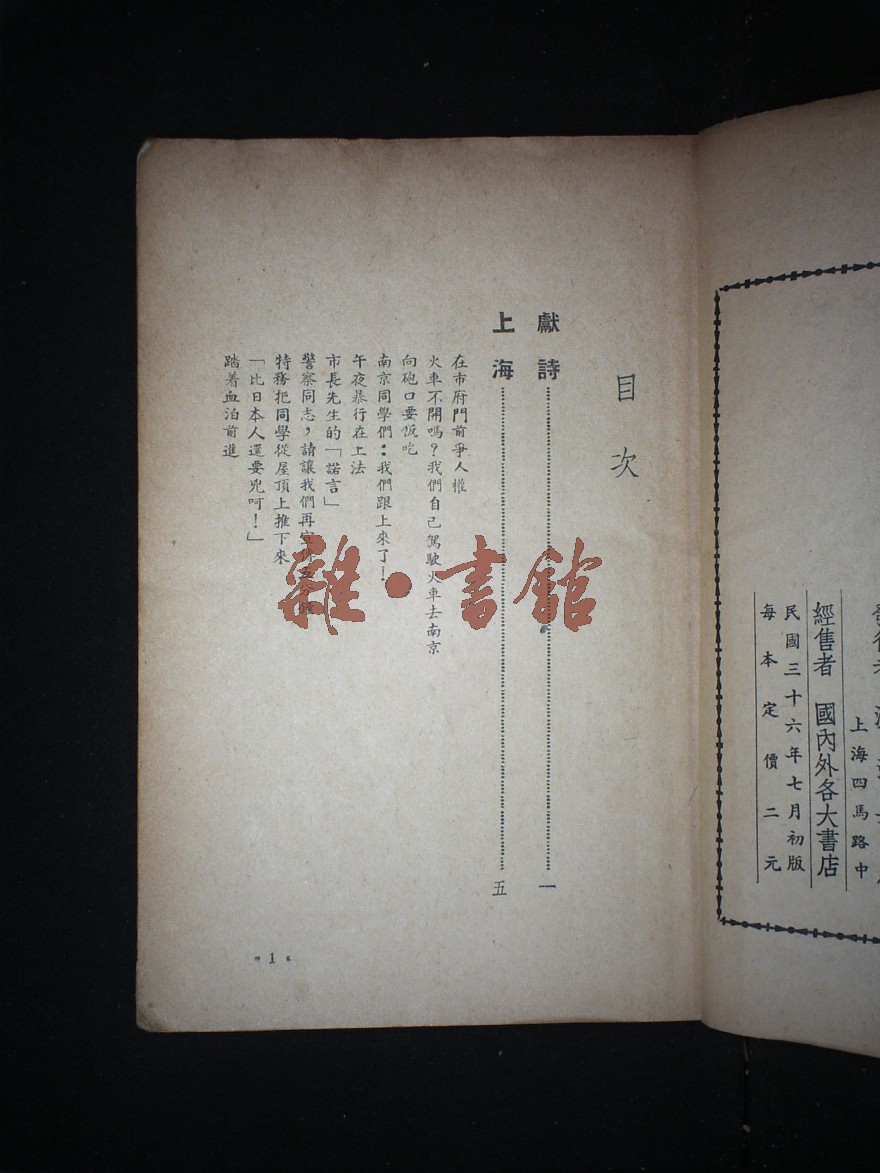 發行者
上海四馬路中
經售者 國內外各大書店
民國三十六年七月初版
每本定價二元
目次
獻詩 一
上海 五
在市府門前爭人權
火車不開嗎？我們自己駕駛火車去南京
向砲口要飯吃
南京同學們：我們跟上來了！
午夜暴行在上法
市長先生的「諾言」
警察同志，請讓我們再
特務把同學從屋頂上推下來
「比日本人還要兇呵！」
踏着血泊前進
1
雜·書館